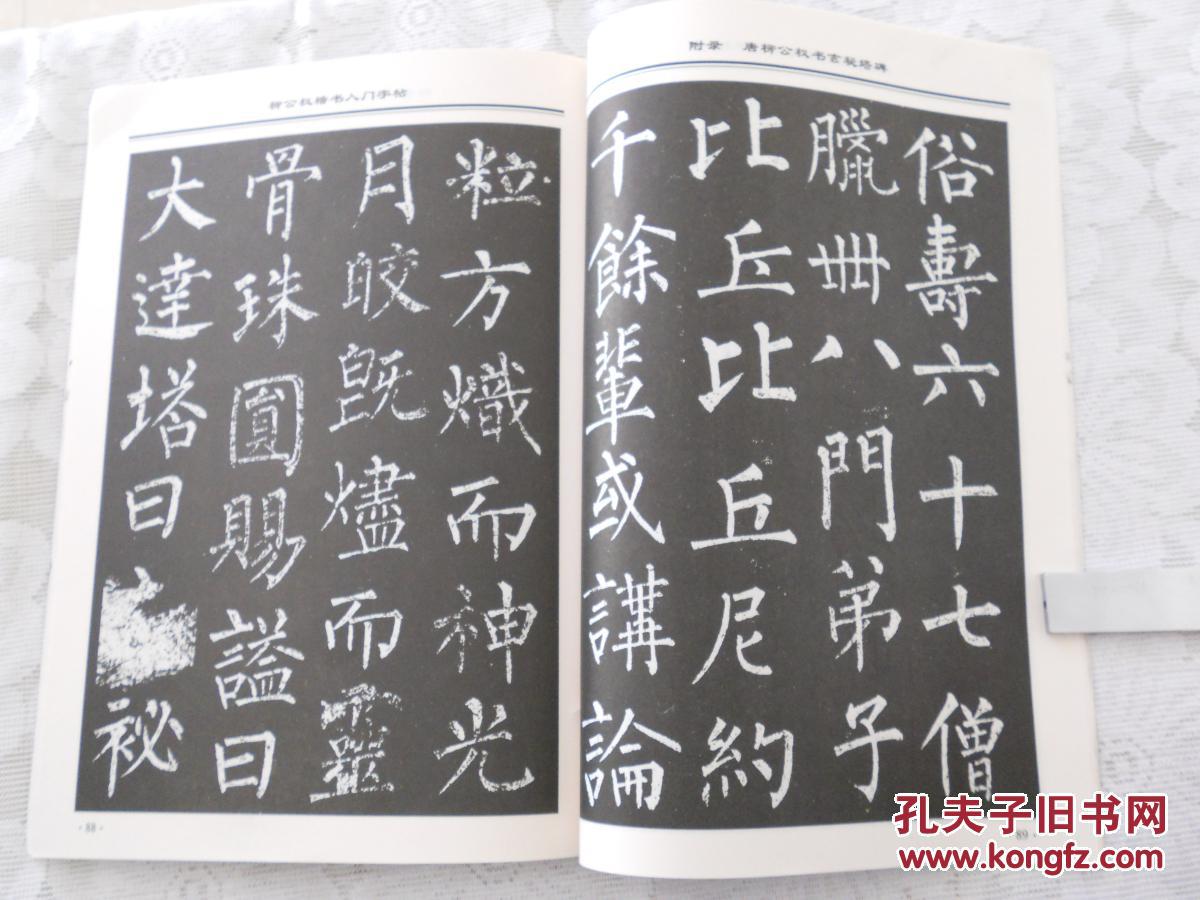 柳公权楷书入门字帖
粒方熾而神光
月皎既燼而靈
骨珠圓賜謚曰
大達塔曰祕
·88·
附录 唐柳公权书玄秘塔碑
俗壽六十七僧
臘卌八門弟子
比丘比丘尼約
千餘輩或講論
·89·
孔夫子旧书网
www.kongfz.com